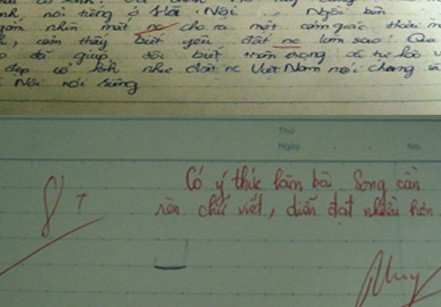 nh, nổi tiếng ở Hà Nội. Ngồi bên
ngắm nhìn mặt nc cho ta một cảm giác thoải m
, cảm thấy biết yêu đất nc làm sao! Qua
đã giúp đôi biết trân trọng
đẹp cổ kính như đất nc Việt Nam nói chung
Nội nói riêng
Thứ
Ngày No.
8+
Có ý thức làm bài. Song cần
rèn chữ viết, diễn đạt nhiều hơn